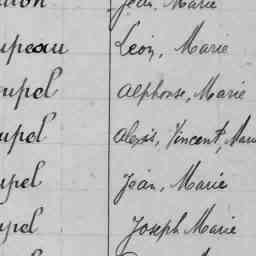 Jean, Marie
upeau Léon, Marie
upel Alphonse, Marie
upel Alexis, Vincent, Mari
upel Jean, Marie
upel Joseph Marie